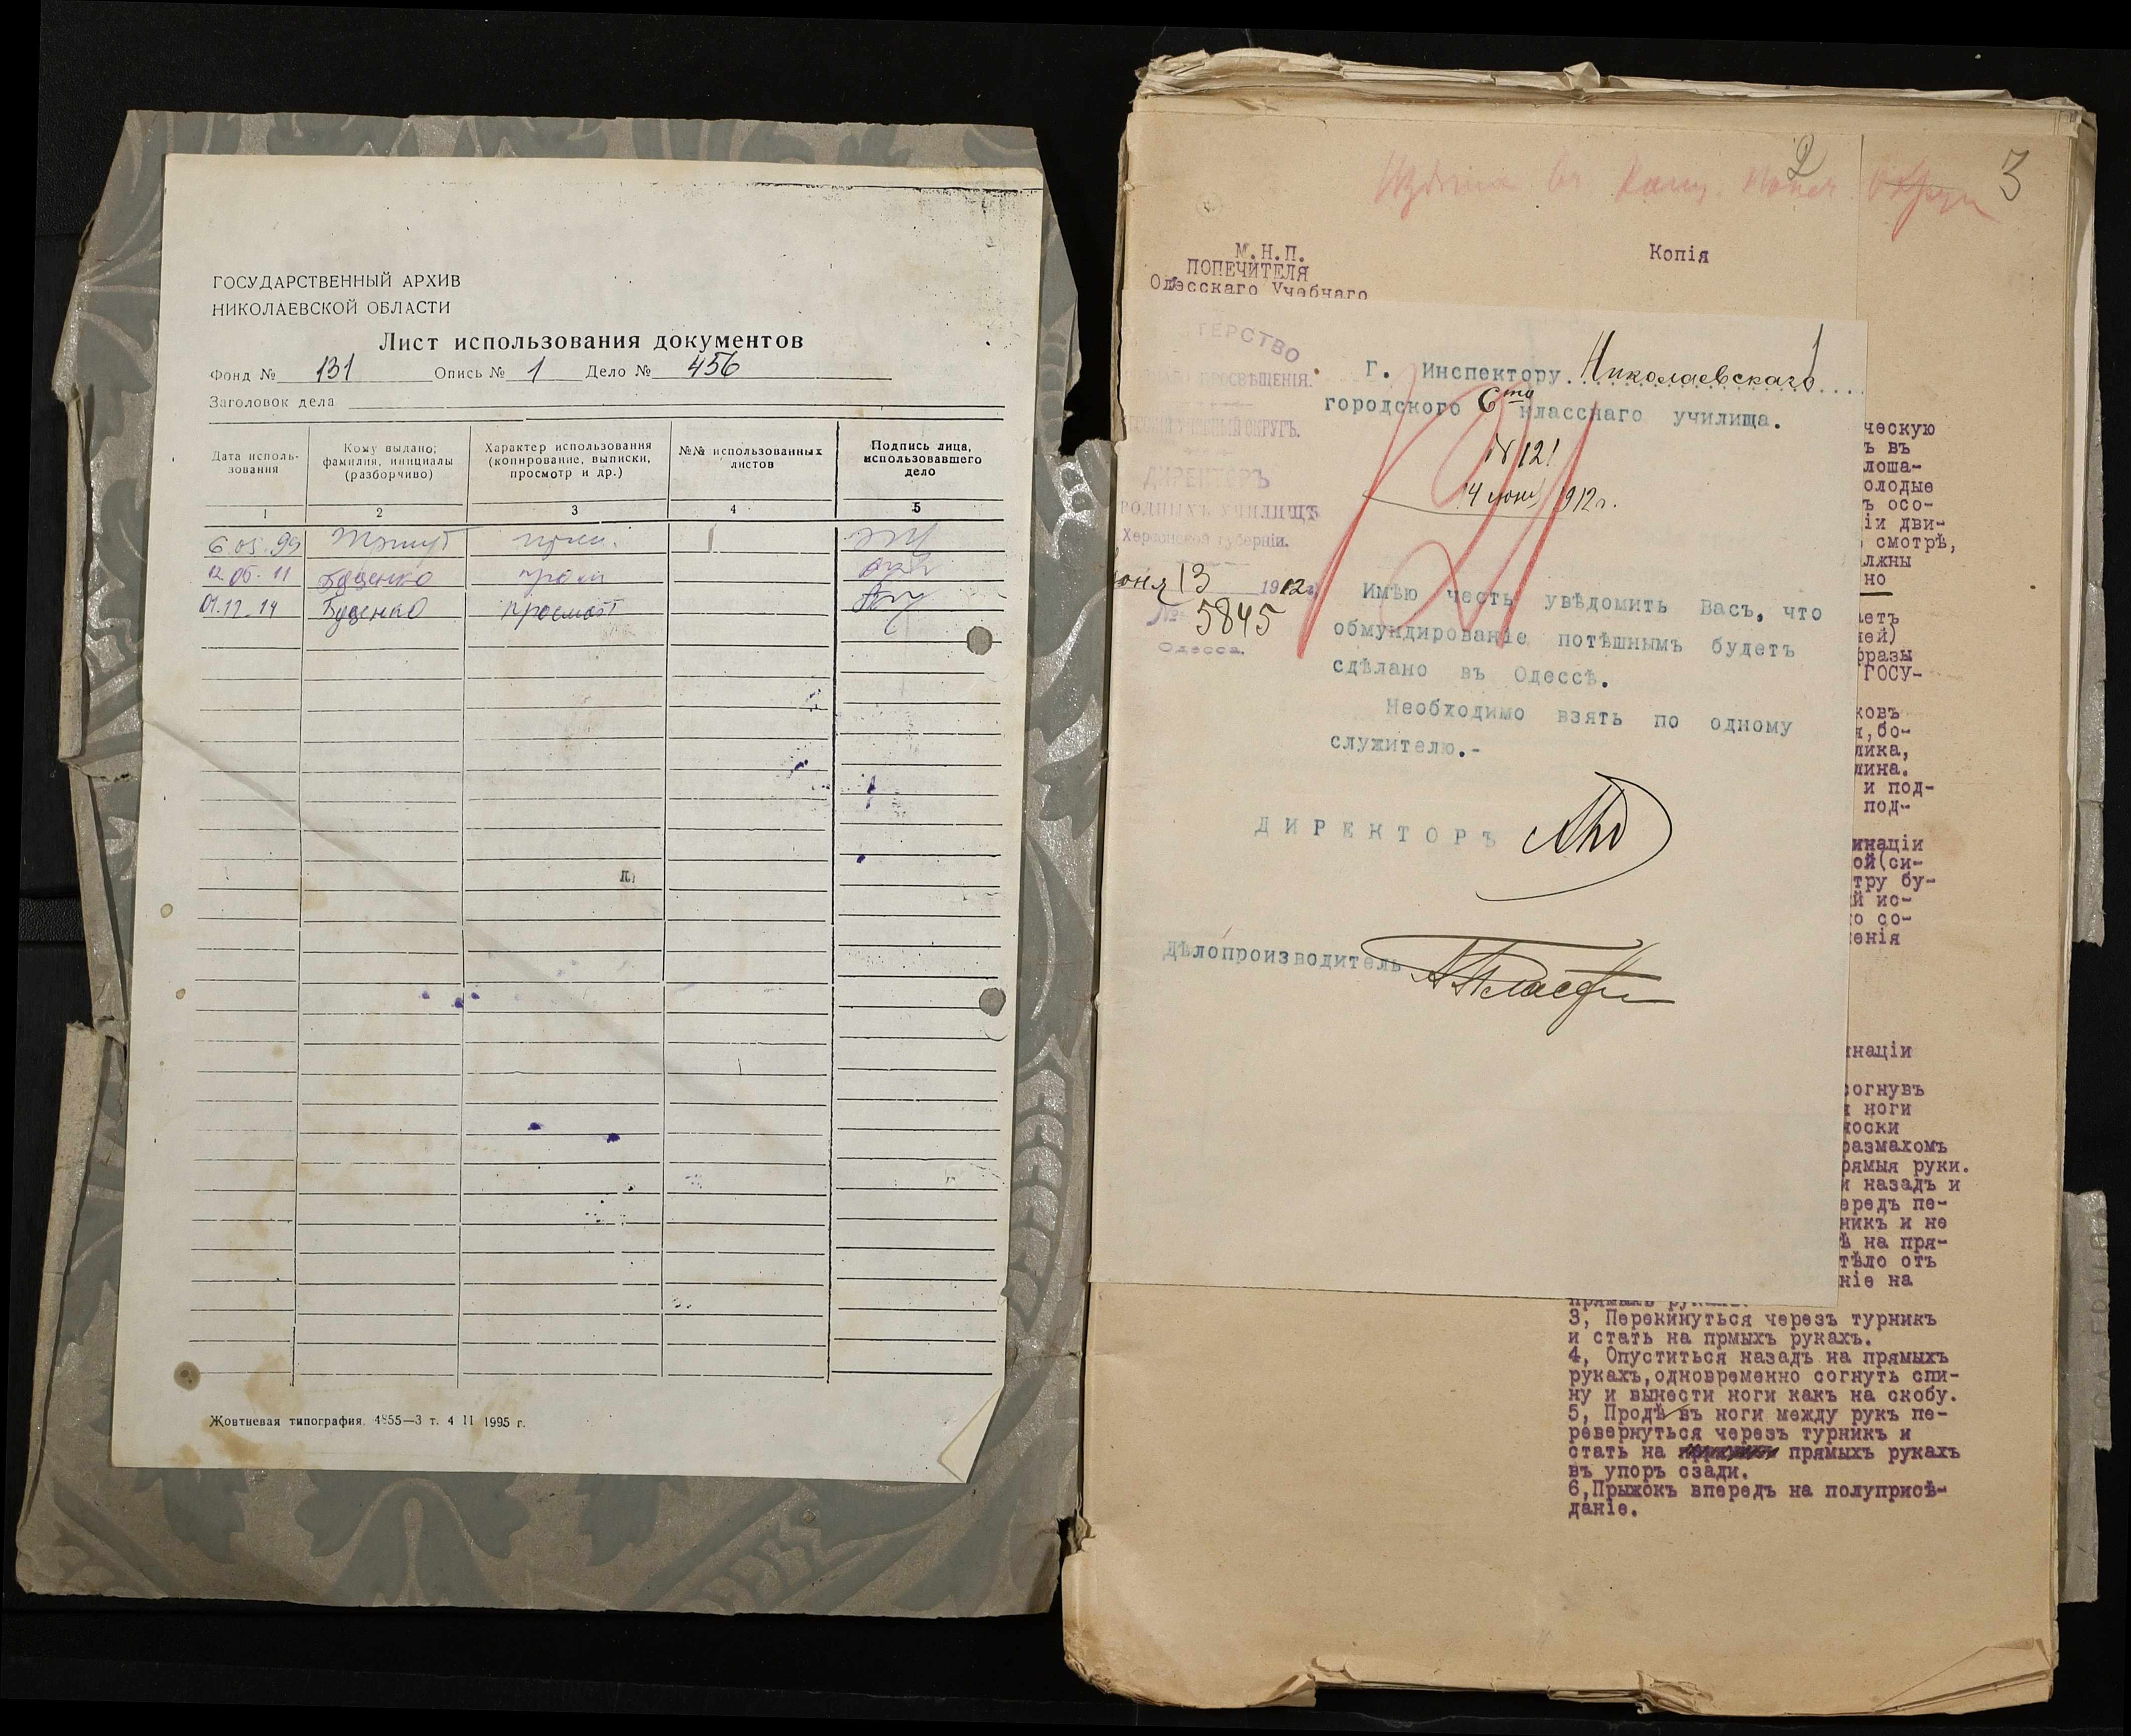 ГОСУДАРСТВЕННЫЙ АРХИВ
НИКОЛАЕВСКОЙ ОБЛАСТИ
Лист использования документов
Фонд № 131 Опись № 1 Дело № 456
Заголовок дела
Дата исполь-
зования
Кому выдано;
фамилия, инициалы
(разборчиво)
Характер использования
(копирование, выписки,
просмотр и др.)
№№ использованных
листов
Подпись лица,
использовавшего
дело
1 2 3 4 5
6.05.99
12.05.11 Буценко
01.12.14 Буценко просмотр
Жовтневая типография. 4855—3 т. 4 II 1995 г.
2
3
М.Н.П.
ПОПЕЧИТЕЛЯ
Одесскаго Учебнаго
Копія
ТЕРСТВО
ПРОСВѢЩЕНІЯ.
УЧЕБНЫЙ ОКРУГЪ.
ДИРЕКТОРЪ
РОДНЫХЪ УЧИЛИЩЪ
Херсонской губерніи.
юня 13 1912 г.
№ 5845
Одесса.
Г. Инспектору Николаевскаго
городского 6ти класснаго училища.
№ 121
14 июня 1912 г.
Имѣю честь увѣдомить Васъ, что
обмундированіе потѣшнымъ будетъ
сдѣлано въ Одессѣ.
Необходимо взять по одному
служителю.-
ДИРЕКТОРЪ
Дѣлопроизводитель
ческую
ъ въ
лоша-
олодые
ъ осо-
іи дви-
смотрѣ,
лжны
но
аетъ
ней)
фразы
ГОСУ-
ковъ
я,бо-
лика,
лина.
и под-
под-
инаціи
ой(си-
тру бу-
й ис-
о со-
енія
инаціи
согнувъ
и ноги
носки
размахомъ
рямыя руки.
и назадъ и
ередъ пе-
никъ и не
ѣ на пря-
тѣло отъ
ніе на
прямыхъ рукахъ.
3, Перекинуться черезъ турникъ
и стать на прмыхъ рукахъ.
4, Опуститься назадъ на прямыхъ
рукахъ,одновременно согнуть спи-
ну и вынести ноги какъ на скобу.
5, Продѣвъ ноги между рукъ пе-
ревернуться черезъ турникъ и
стать на прямыхъ рукахъ
въ упоръ сзади.
6,Прыжокъ впередъ на полуприсѣ-
даніе.